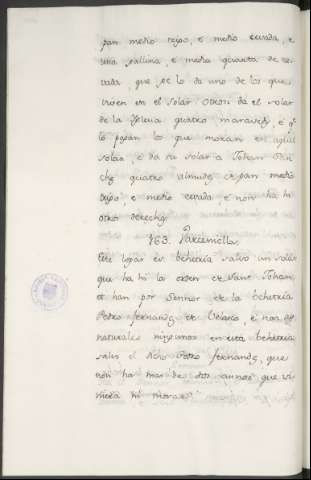 pan medio trigo, e medio cevada, e
una gallina, e media quarta de ce-
vada, que se lo da uno de los que
viven en el solar otrosi da el solar
de la Yglesia quatro maravedis, e qe
lo pagan los que moran en aquel
solar, e da su solar a Johan San-
chez quatro almudes de pan medio
trigo, e medio cevada, e non ha hi
otro derecho
163. Parcemilla.
Este logar es behetria salvo un solar
que ha hi la orden de Sant Johan,
et han por Sennor de la behetria
Pedro fernandez de Velasco, e non ha
naturales ningunos en esta behetria
salvo el dicho Pedro fernandez, que
non ha mas de dos annos que vi-
niera hi morar